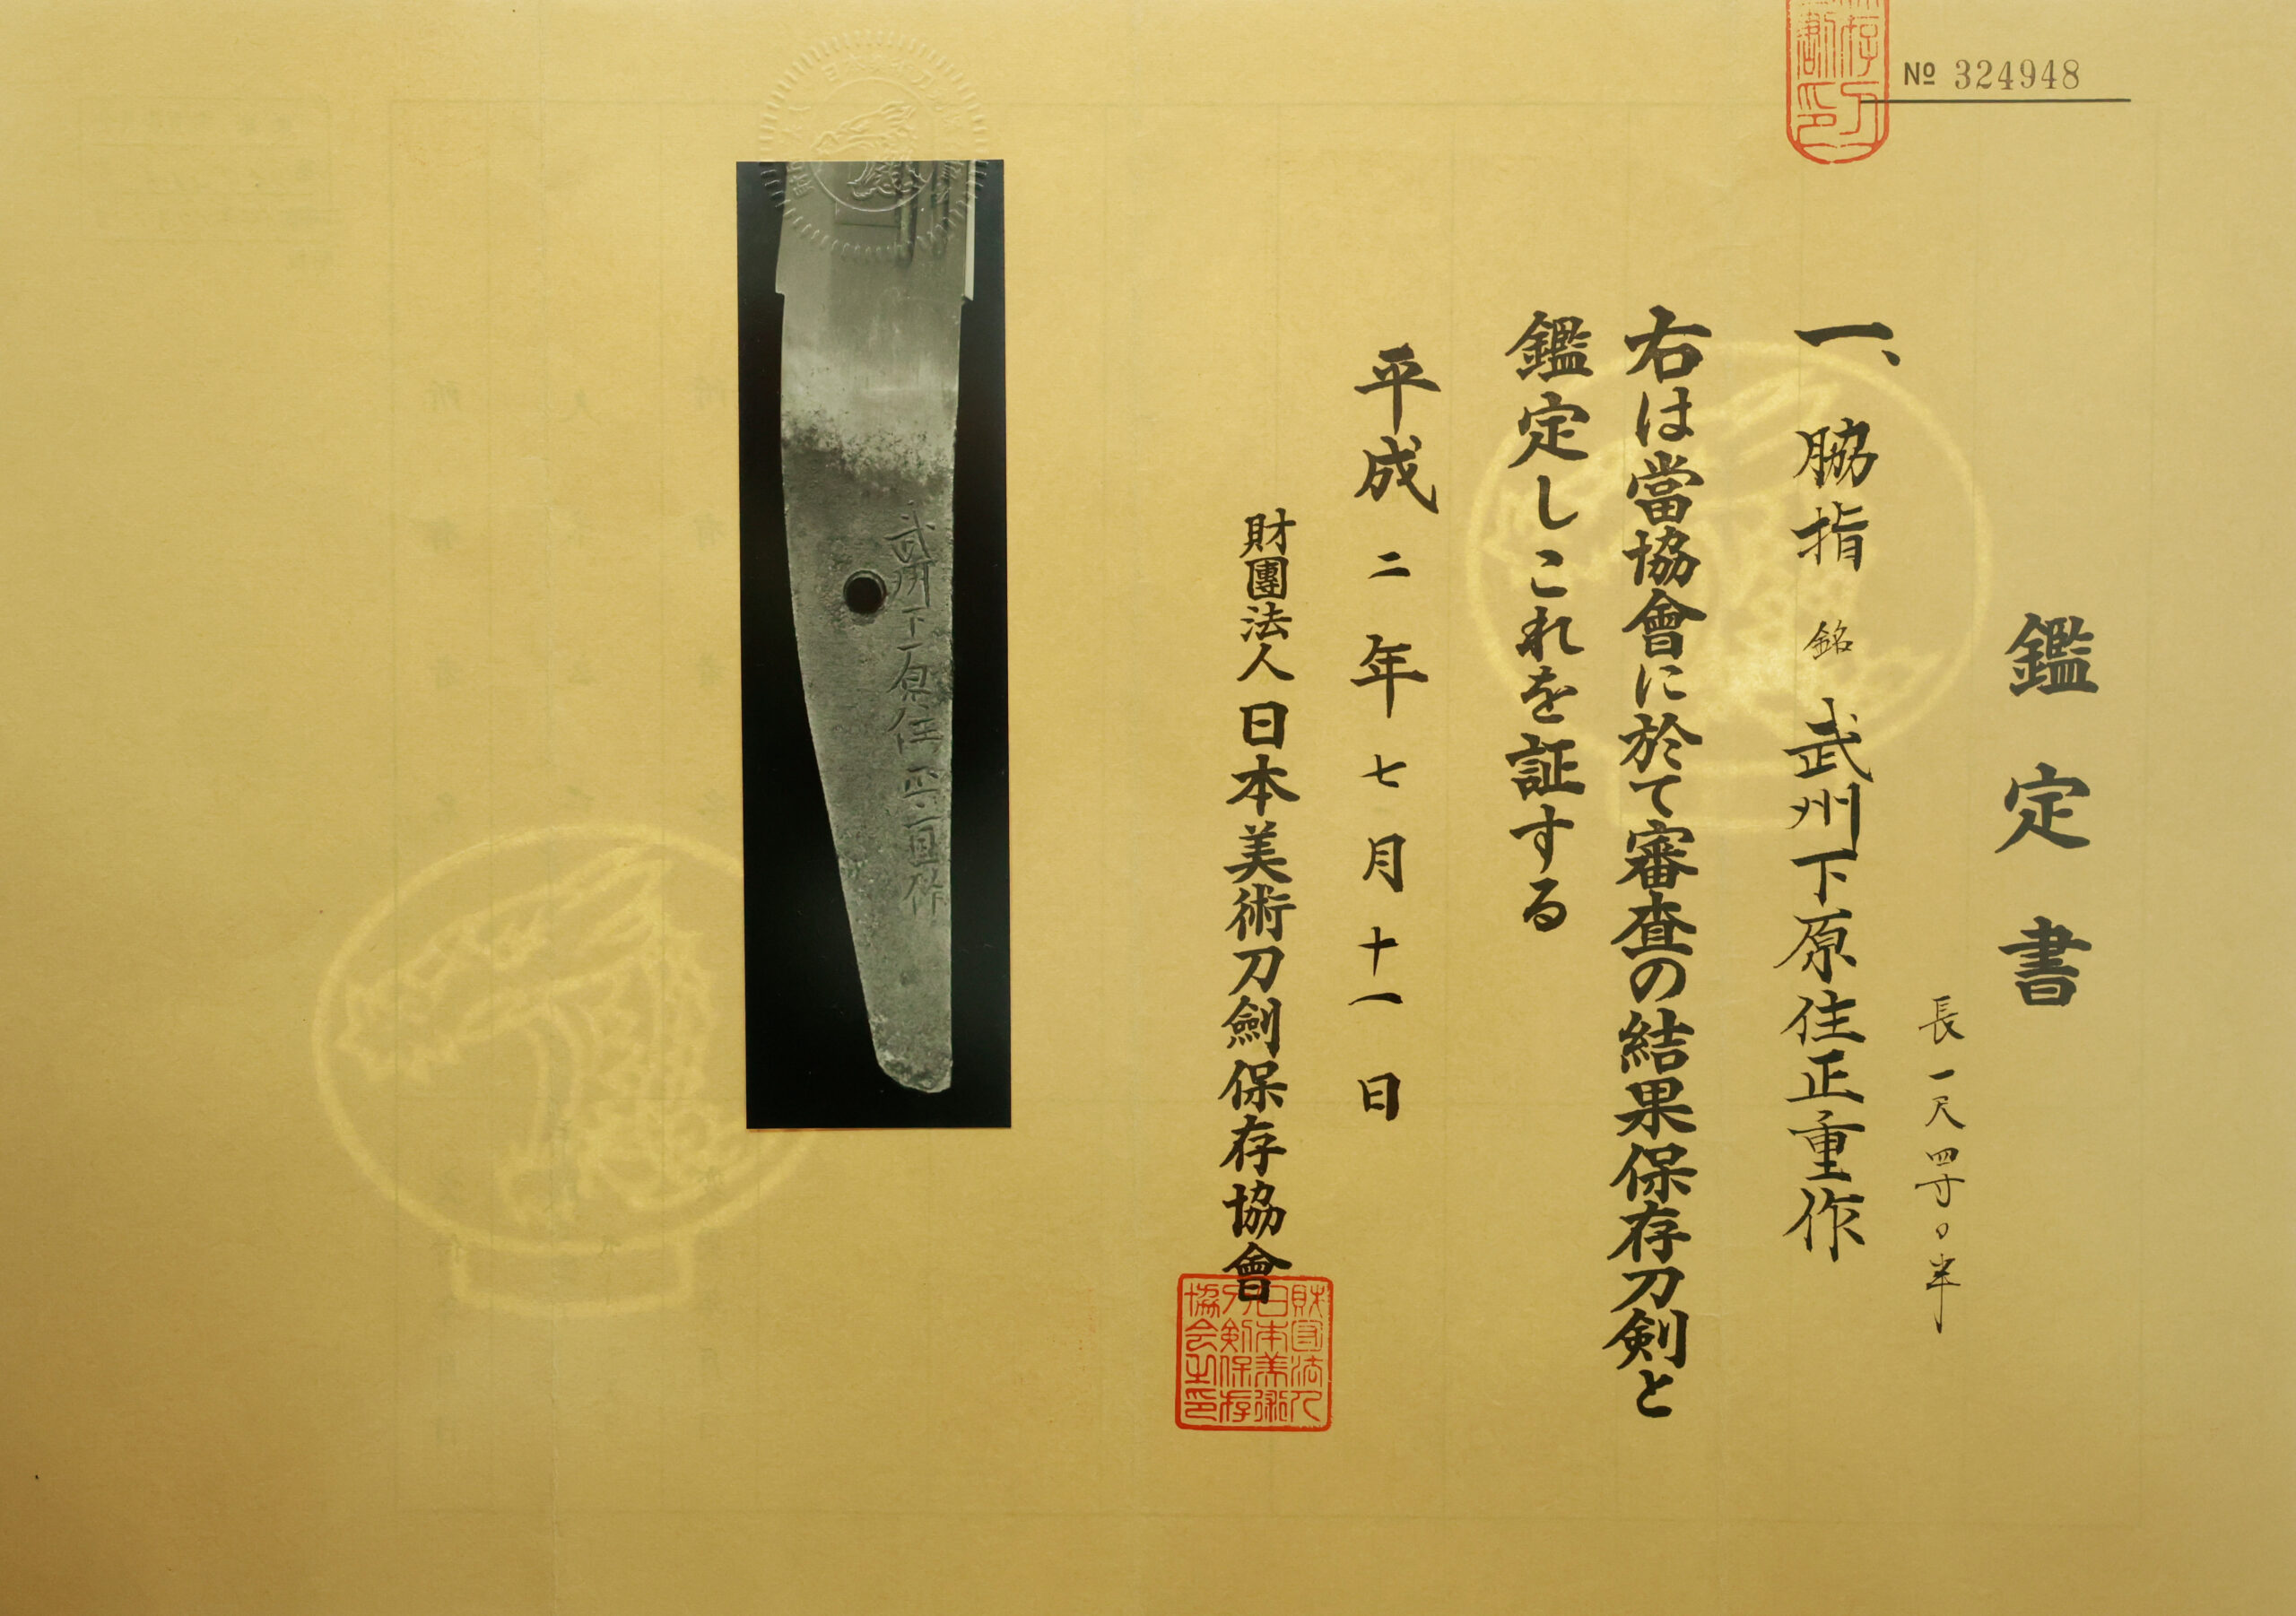 № 324948
鑑定書
長一尺四寸〇半
一、脇指 銘 武州下原住正重作
右は當協會に於て審査の結果保存刀剣と
鑑定しこれを証する
平成二年七月十一日
財團法人日本美術刀劍保存協會
財団法人
日本美術
刀剣保存
協会之印
武州下原住正重作